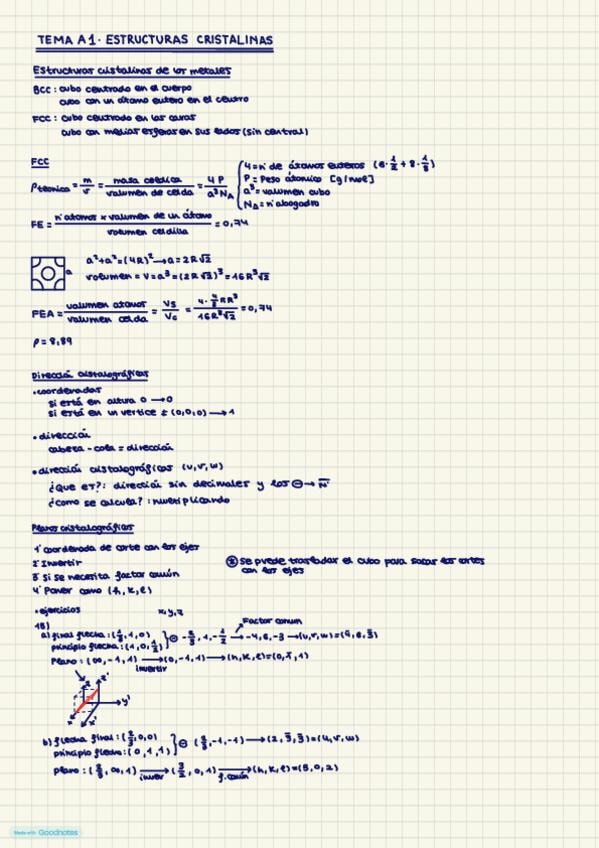 TEMA A1. ESTRUCTURAS CRISTALINAS
Estructuras cristalinas de los metales
BCC: cubo centrado en el cuerpo
cubo con un átomo entero en el centro
FCC: cubo centrado en las caras
cubo con medias esferas en sus lados (sin central)
FCC
ρteórica = m/v = masa celdilla/valumen de celda = 4P/a³NA { 4 = nº de átomos enteros (6·1/2 + 8·1/8)
P = Peso átomico [g/mol]
a³ = valumen cubo
NA = nº abogadro
FE = nº átomos x valumen de un átomo/valumen celdilla = 0,74
a
a²+a²=(4R)² → a=2R√2
volumen = V=a³=(2R√2)³=16R³√2
FEA = valumen atomos/valumen celda = Vs/Vc = 4·4/3πR³/16R³√2 = 0,74
ρ = 8,89
Dirección cristalográficas
• coordenadas
si está en altura 0 → 0
si está en un vertice ± (0,0,0) → 1
• dirección
cabeza - cola = dirección
• dirección cristalográficas (u,v,w)
¿Que es?: dirección sin decimales y los ⊖ → N̅
¿como se calcula?: multiplicando
Planos cristalográficos
1º coordenada de corte con los ejes
2º Invertir
3º Si se necesita factor común
4º Poner como (h, k, l)
⊛ Se puede trasladar el cubo para sacar los cortes
con los ejes
• ejercicios
x,y,z
15)
Factor comun
a) final flecha: (1/3,1,0)
principio flecha: (1,0,1/2)
} ⊖ -2/3,1,-1/2 → -4,6,-3 → (u,v,w)=(4̅,6,3̅)
Plano: (∞,-1,1) → (0,-1,1) → (h,k,l)=(0,1̅,1)
invertir
z z'
y'
x x'
b) flecha final: (2/3,0,0)
principio flecha: (0,1,1)
} ⊖ (2/3,-1,-1) → (2,3̅,3̅)=(u,v,w)
plano: (2/3,∞,1) → (3/2,0,1) → (h,k,l)=(3,0,2)
inver f.común
Made with Goodnotes